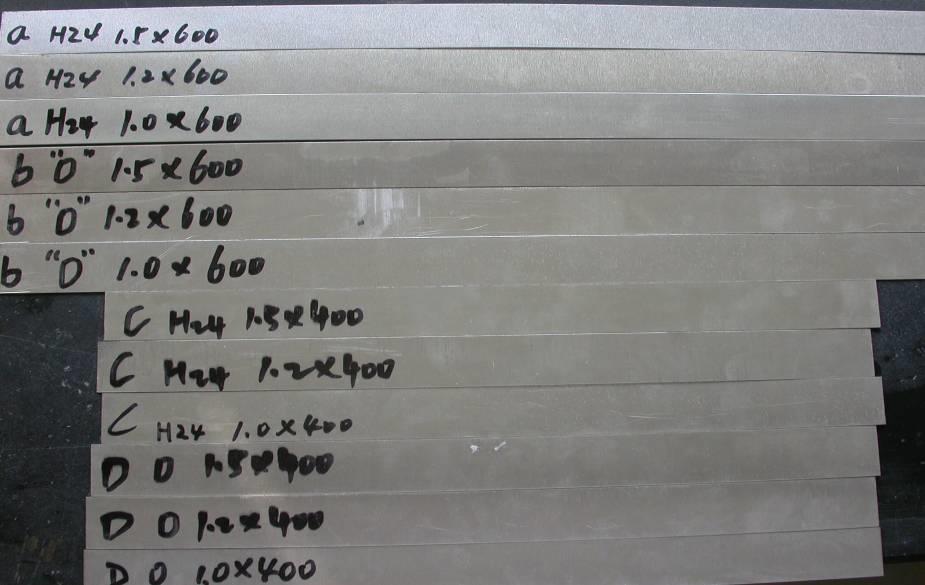 a H24 1.5×600
a H24 1.2×600
a H24 1.0×600
b "O" 1.5×600
b "O" 1.2×600
b "O" 1.0×600
C H24 1.5×400
C H24 1.2×400
C H24 1.0×400
D O 1.5×400
D O 1.2×400
D O 1.0×400